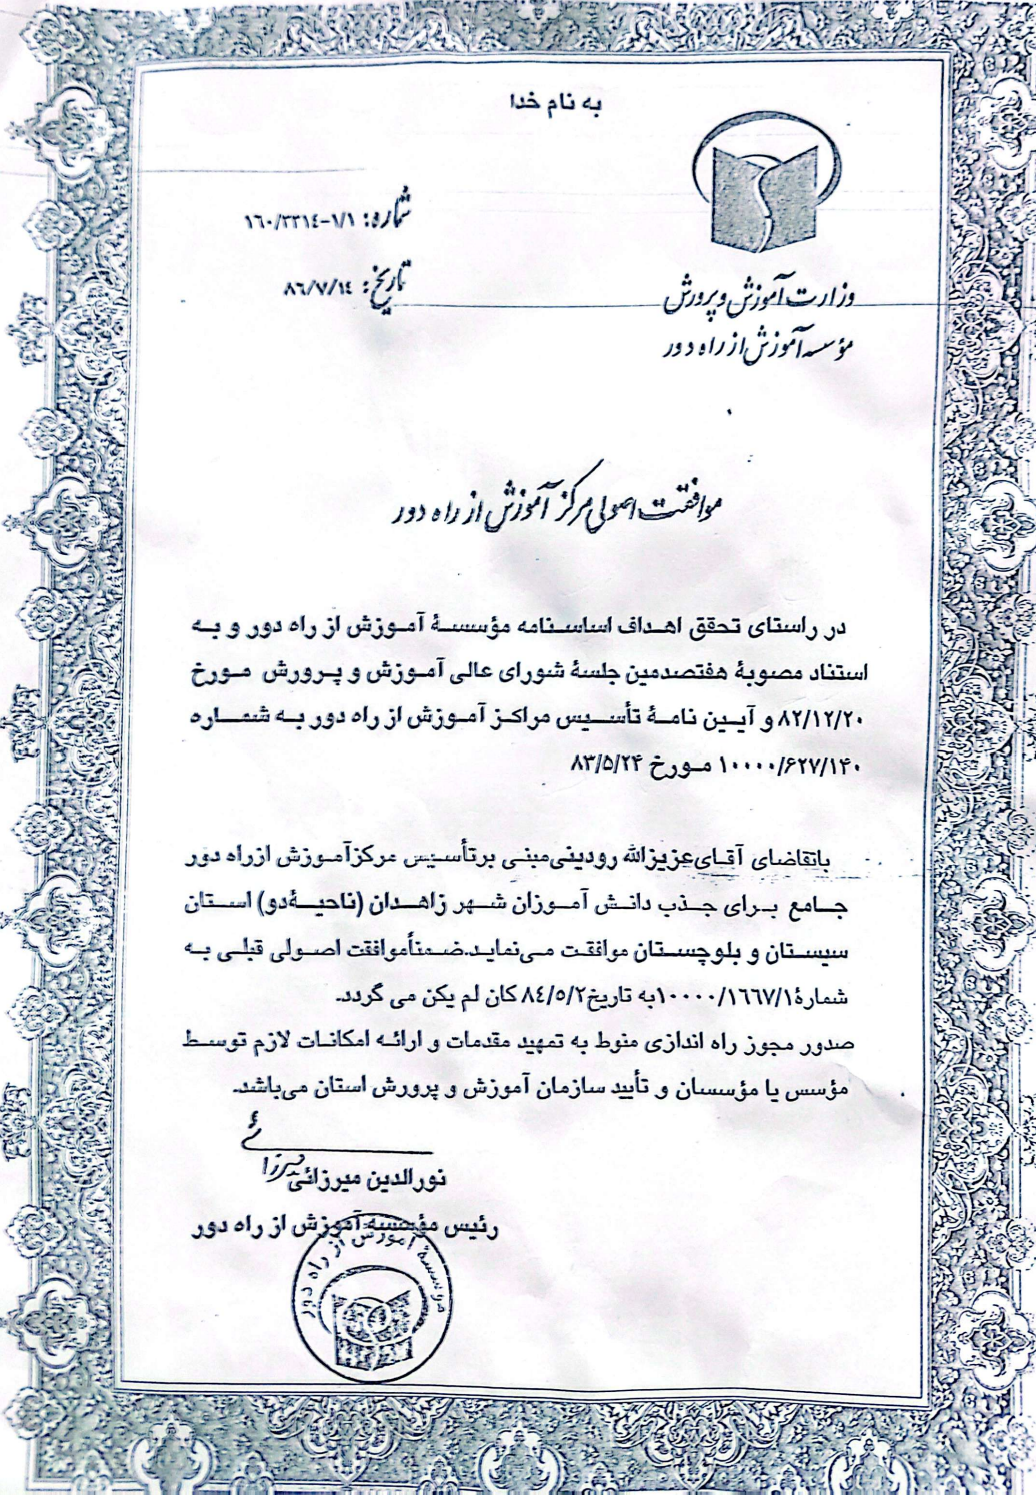 به نام خدا
شماره: ۱۶۰/۳۳۱۴-۱/۱
تاریخ: ۸۶/۷/۱۴
وزارت آموزش و پرورش
مؤسسه آموزش از راه دور
موافقت اصولی مرکز آموزش از راه دور
در راستای تحقق اهداف اساسنامه مؤسسهٔ آموزش از راه دور و به
استناد مصوبهٔ هفتصدمین جلسهٔ شورای عالی آموزش و پرورش مورخ
۸۲/۱۲/۲۰ و آیین نامهٔ تأسیس مراکز آموزش از راه دور به شماره
۱۰۰۰۰/۶۲۷/۱۴۰ مورخ ۸۳/۵/۲۴
باتقاضای آقای عزیزالله رودینی مبنی برتأسیس مرکزآموزش ازراه دور
جامع برای جذب دانش آموزان شهر زاهدان (ناحیهٔ دو) استان
سیستان و بلوچستان موافقت می‌نماید.ضمناًموافقت اصولی قبلی به
شمارهٔ ۱۰۰۰۰/۱۶۶۷/۱به تاریخ۸۴/۵/۲ کان لم یکن می گردد.
صدور مجوز راه اندازی منوط به تمهید مقدمات و ارائه امکانات لازم توسط
مؤسس یا مؤسسان و تأیید سازمان آموزش و پرورش استان می‌باشد.
نورالدین میرزائی
رئیس مؤسسه آموزش از راه دور
مؤسسهٔ آموزش از راه دور